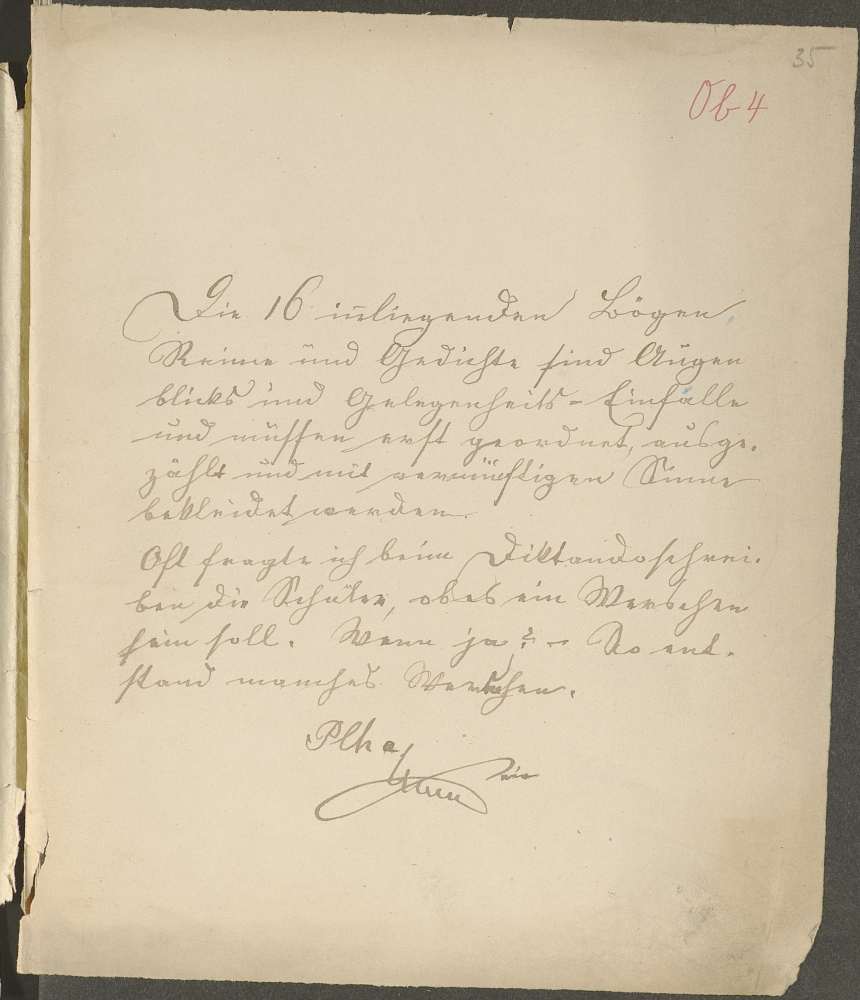 35
Ob 4
Die 16 inliegenden Bögen
Reime und Gedichte sind Augen
blicks und Gelegenheits-Einfälle
und müssen erst geordnet, ausge-
zählt und mit vernünftigen Sinne
bekleidet werden.
Oft fragte ich beim Diktandoschrei-
ben die Schüler, ob es ein Verschen
sein soll. Wenn ja? - So ent-
stand manches Verschen.
Plha